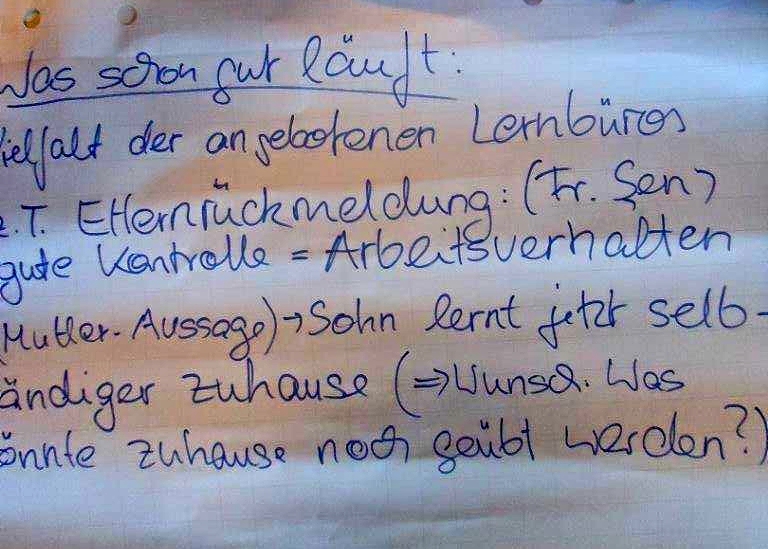 Was schon gut läuft:
ielfalt der angebotenen Lernbüros
z.T. Elternrückmeldung: (Fr. Şen)
gute Kontrolle = Arbeitsverhalten
(Mutter-Aussage) → Sohn lernt jetzt selb-
ändiger zuhause (⇒ Wunsch. Was
önnte zuhause noch geübt werden?)